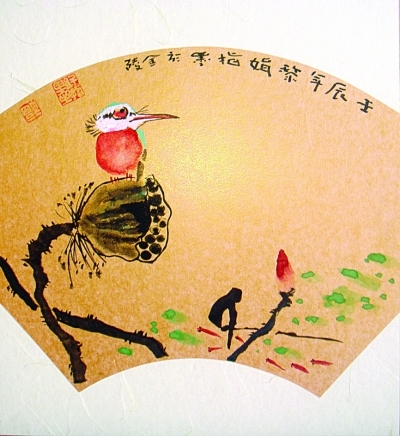 壬辰年黎娟指墨於金陵